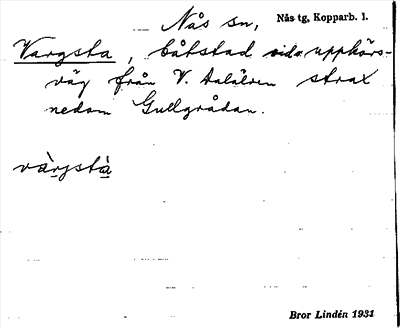 Nås sn,
Nås tg, Kopparb. l.
Vargsta, båtstad vid uppkörs-
väg från V. Dalälven strax
nedom Gullgrådan.
vàrgstà
Bror Lindén 1931